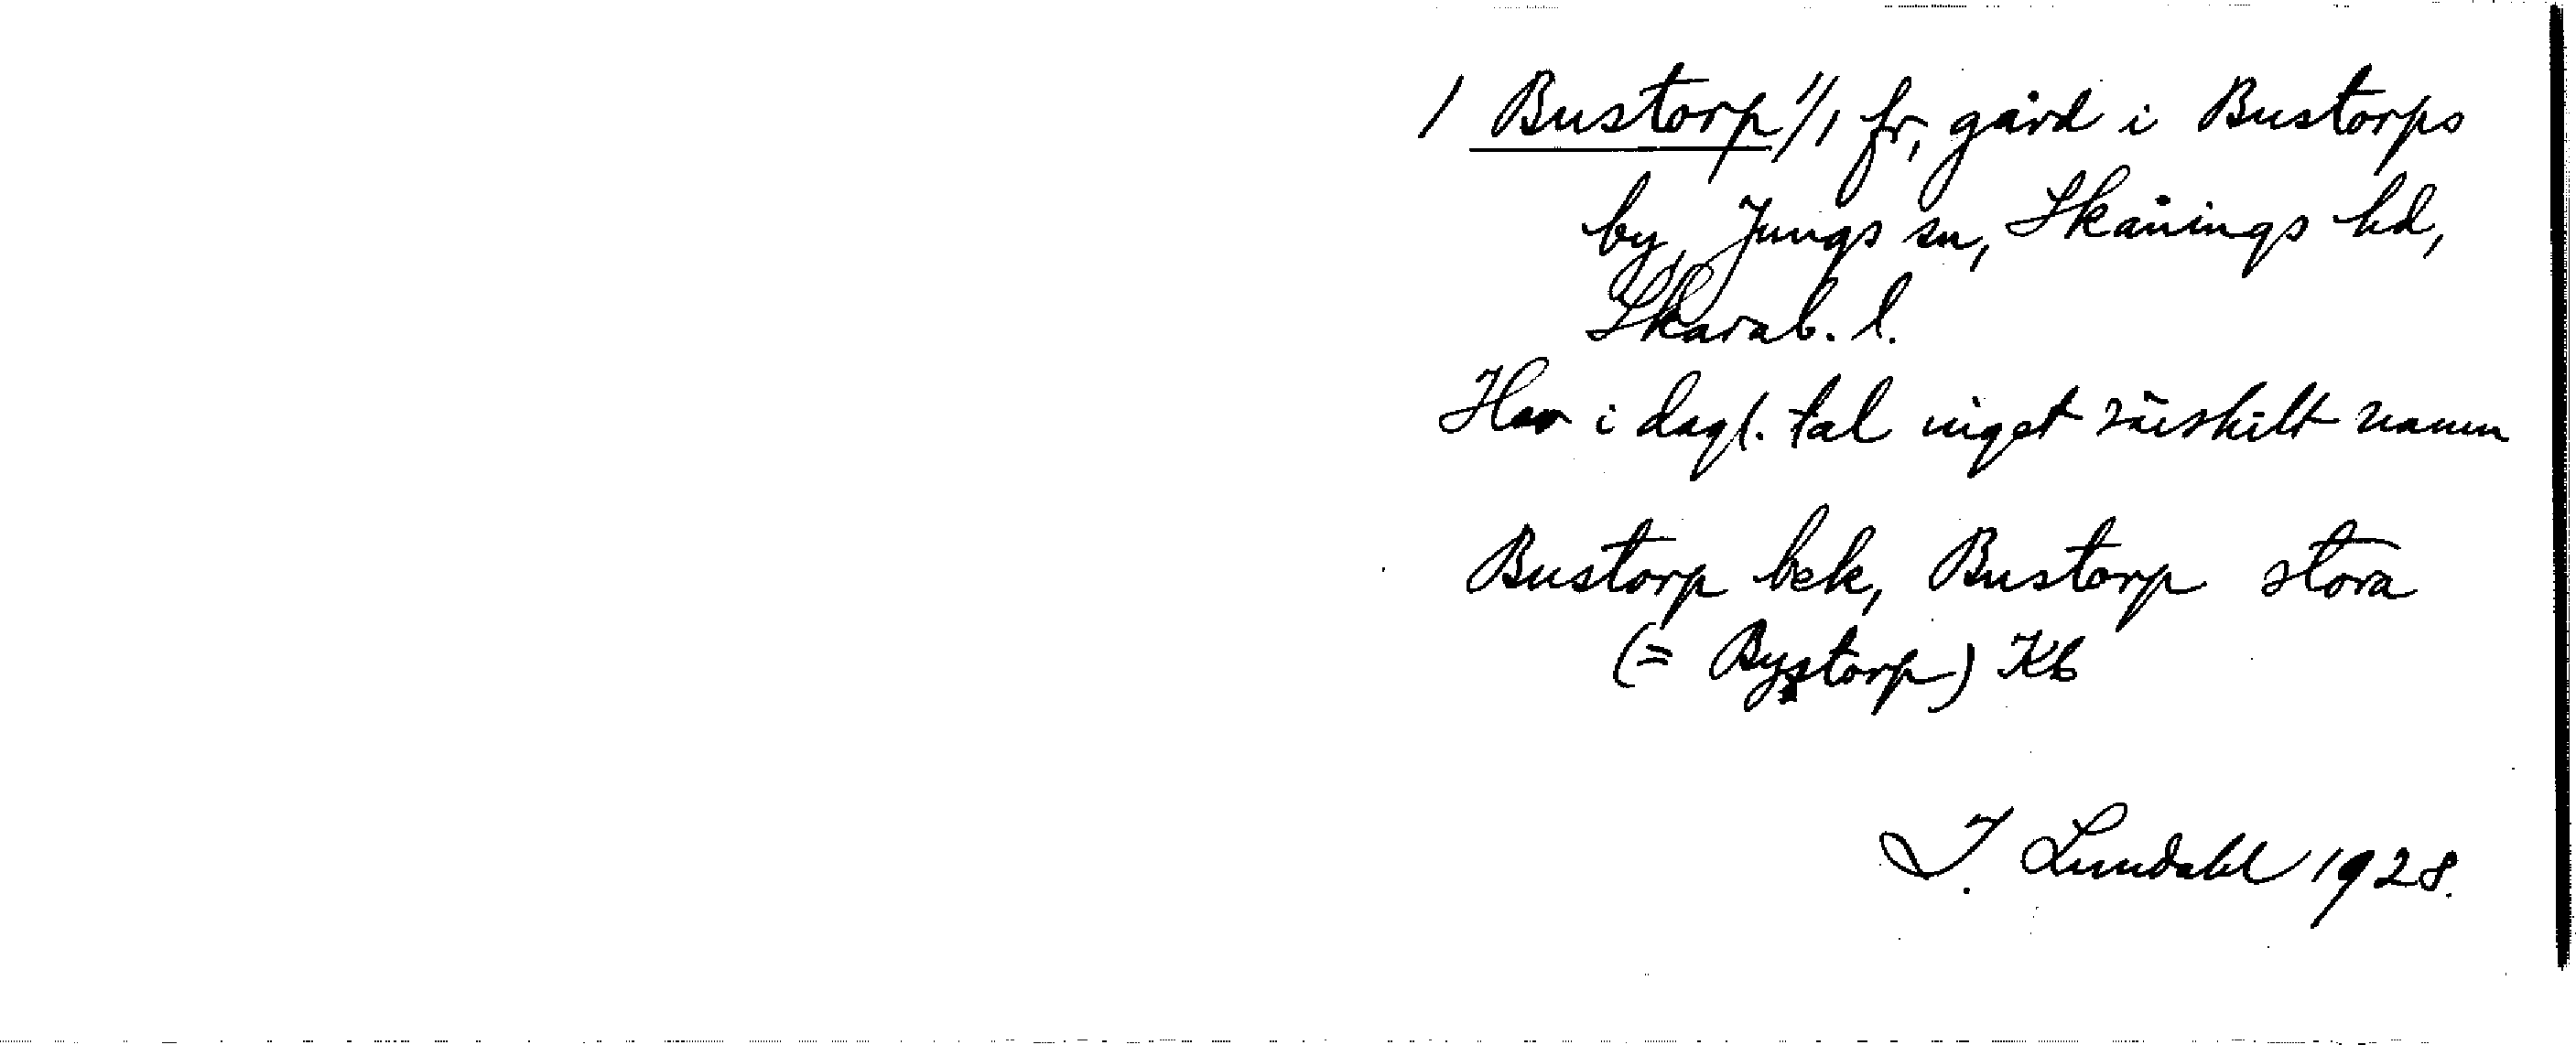 1 Bustorp 1/1 fr, gård i Bustorps
by, Jungs sn, Skånings hd,
Skarab. l.
Har i dagl. tal inget särskilt namn
Bustorp bek, Bustorp stora
(= Bystorp) Kb
I. Lundahl 1928.